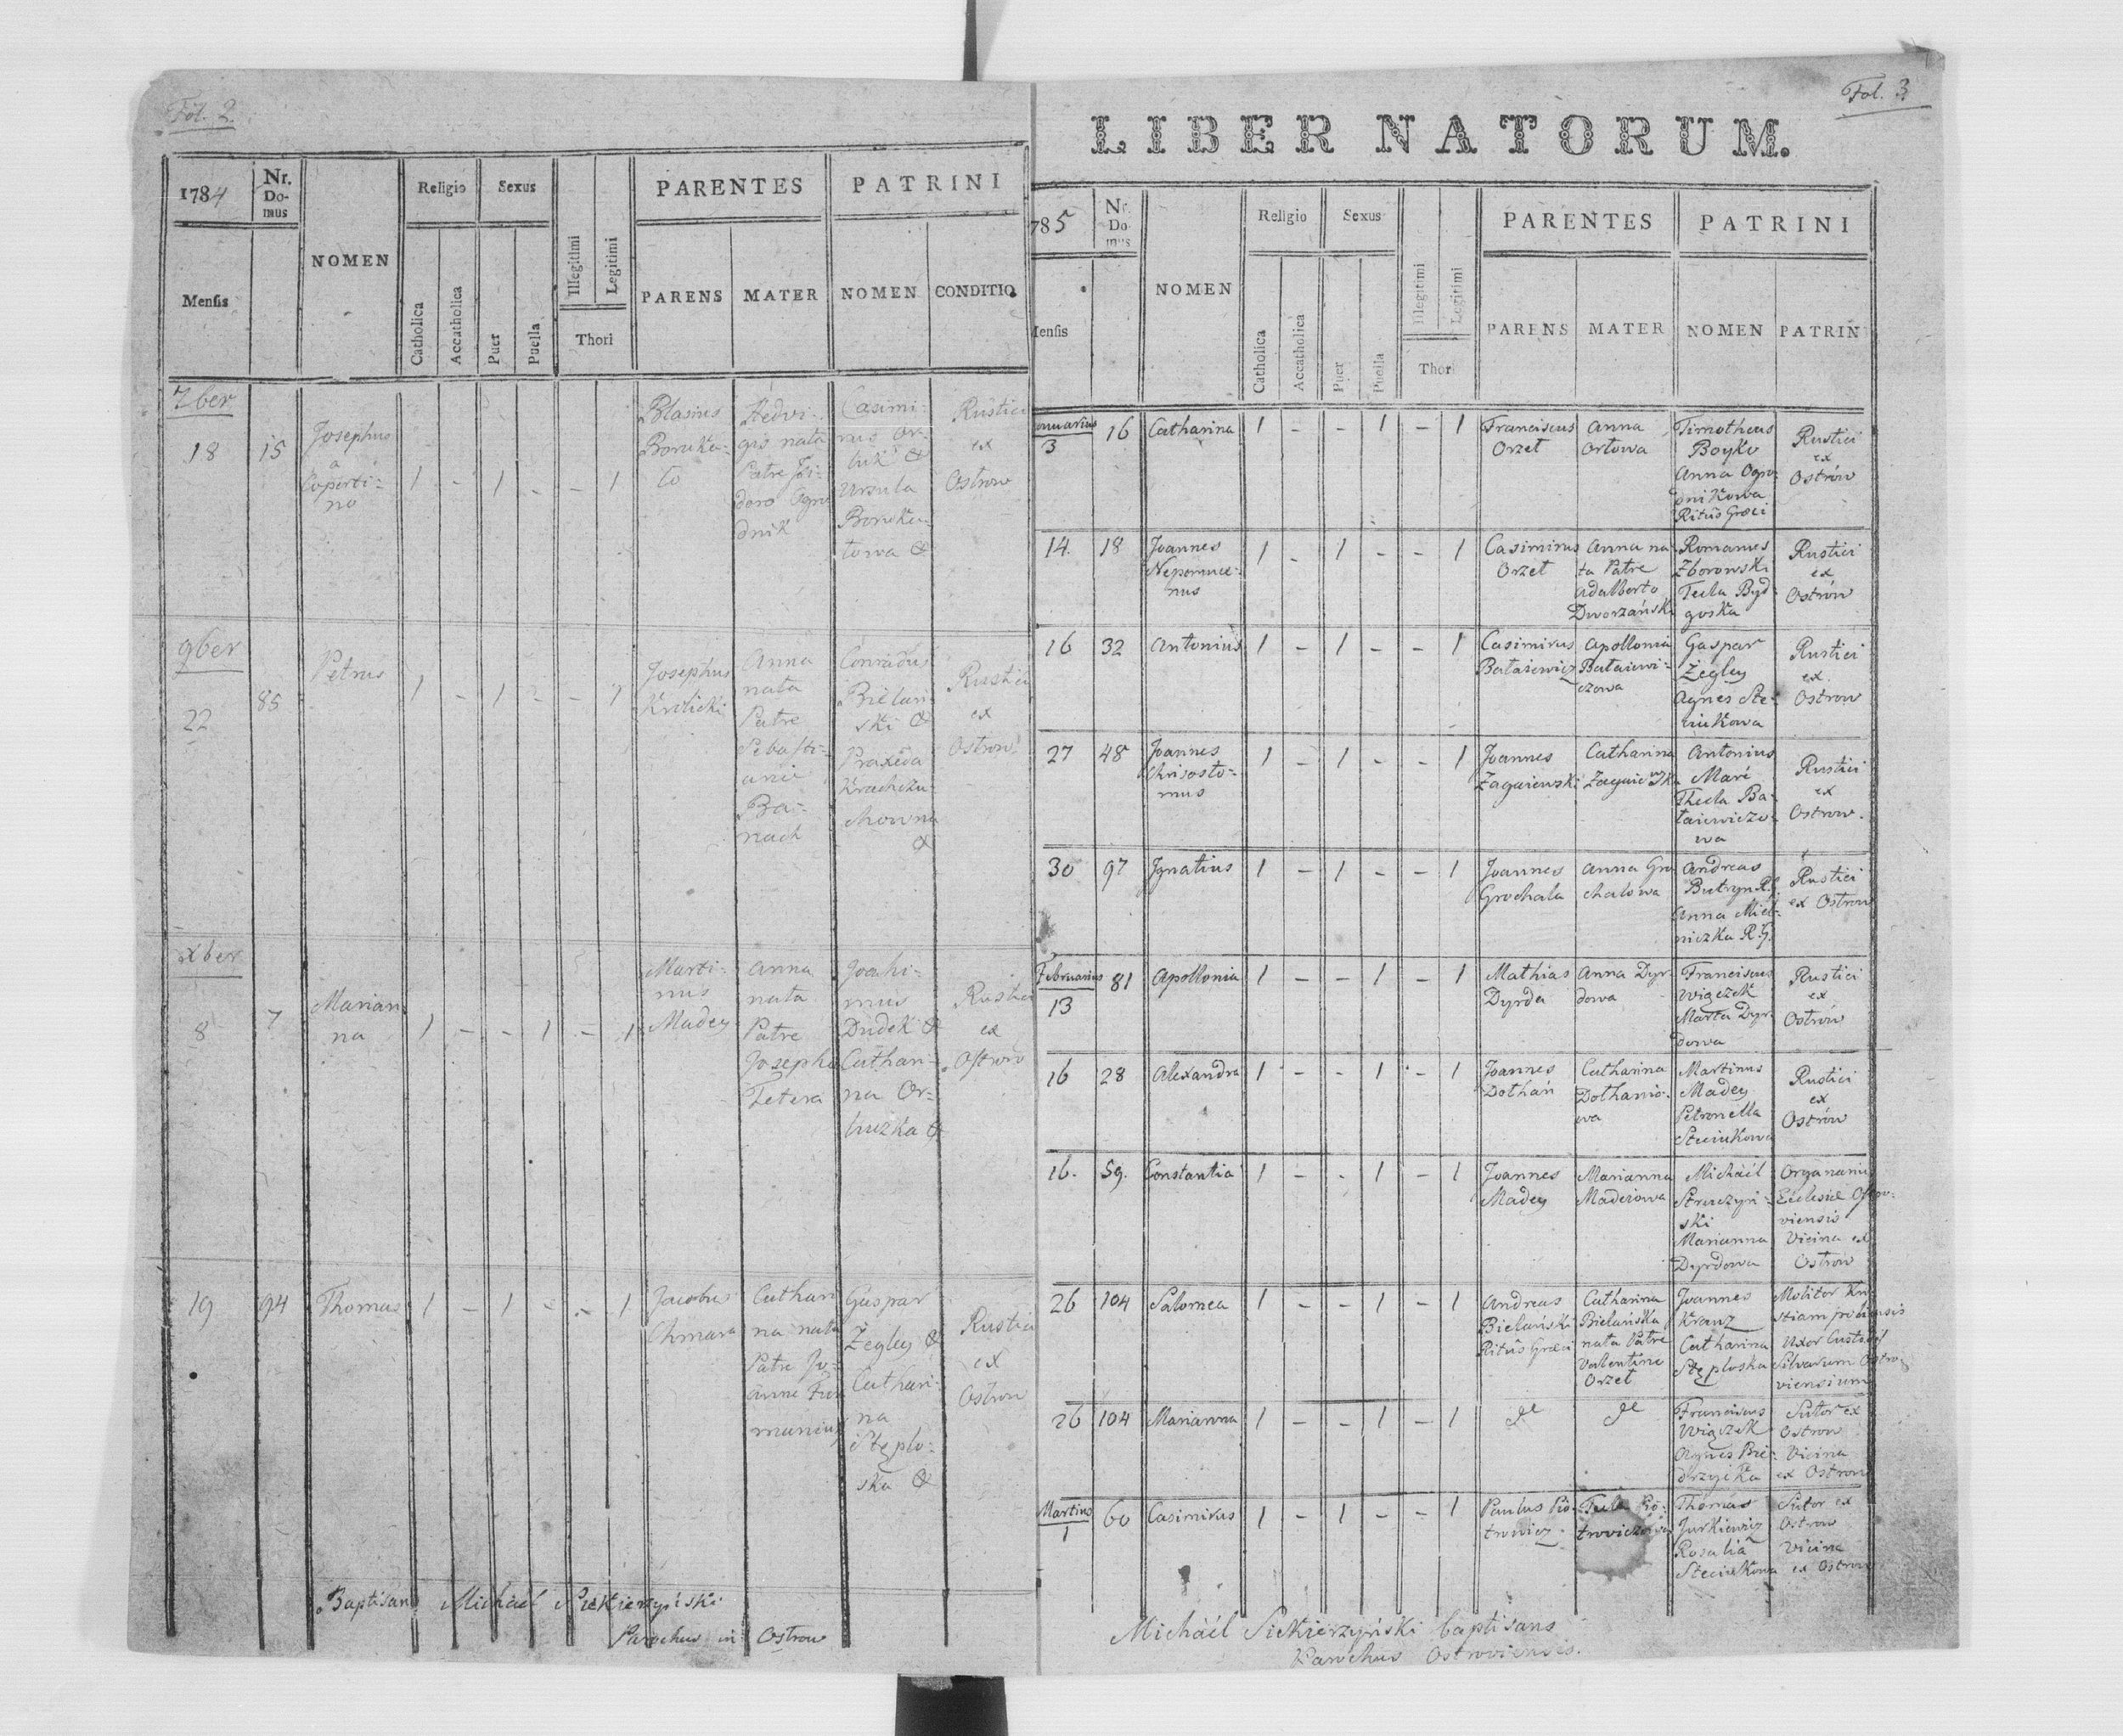 Fol. 2.
1784
Nr. Do- mus
NOMEN
Religio
Sexus
Illegitimi
Legitimi
PARENTES
PATRINI
Mensis
Catholica
Accatholica
Puer
Puella
Thori
PARENS
MATER
NOMEN
CONDITIO
7ber
18 15 Josephus a Coperti- no 1 - 1 - - 1
Blasius
Hedvi- gis nata Patre
Casimi- rus & Ursula &
Rustici ex Ostrow
9ber
22 85 Petrus 1 - 1 - - 1
Josephus Krolicki
Anna nata Patre Sebasti-
Conradus Bielan- ski & Praxeda &
Rustici ex Ostrow
xber
8 7 Marian na 1 - - 1 - 1
Marti- nus Madey
Anna nata Patre Josepho Tetera
Joahi- mus Dudek & Cathari- na &
Rustici ex Ostrow
19 94 Thomas 1 - 1 - - 1
Jacobus Chmara
Cathari na nata Patre Jo- anne
Gaspar Żegley & Cathari- na Stęplo- ska &
Rustici ex Ostrow
Baptisans Michäel Siekierzyński
Parochus in Ostrow
Fol. 3
LIBER NATORUM.
785
Nr. Do- mus
NOMEN
Religio
Sexus
Illegitimi
Legitimi
PARENTES
PATRINI
Mensis
Catholica
Accatholica
Puer
Puella
Thori
PARENS
MATER
NOMEN
PATRIN
Januarius
3 16 Catharina 1 - - 1 - 1
Franciscus Orzeł
Anna Orłowa
Timotheus Boyko Anna Ogro- dnikowa Ritûs Græci
Rustici ex Ostrów
14. 18 Joannes Nepomuce- nus 1 - 1 - - 1
Casimirus Orzeł
Anna na ta Patre Adalberto Dworzański
Romanus Zborowski Tecla Byd goska
Rustici ex Ostrów
16 32 Antonius 1 - 1 - - 1
Casimirus Bałaiewicz
Apollonia Bałaiewi- czowa
Gaspar Żegley Agnes Ste- ciukowa
Rustici ex Ostrow
27 48 Joannes Chrisosto- mus 1 - 1 - - 1
Joannes Zagaiewski
Catharina
Antonius Thecla Ba- łaiewiczo- wa
Rustici ex Ostrow.
30 97 Ignatius 1 - 1 - - 1
Joannes Grochala
Anna Gro chalowa
Andreas Butryn R.G. Anna R.G.
Rustici ex Ostrow
Februarius
13 81 Apollonia 1 - - 1 - 1
Mathias Dyrda
Anna Dyr- dowa
Franciscus Wiączek Marta Dyr- dowa
Rustici ex Ostrów
16 28 Alexandra 1 - - 1 - 1
Joannes Dothań
Catharina Dothanio- wa
Martinus Madey Petronella Steciukowa
Rustici ex Ostrów
16. 59. Constantia 1 - - 1 - 1
Joannes Madey
Marianna Madeiowa
Michäel Struczyń- ski Marianna Dyrdowa
Organarius Ecclesiæ Ostro- viensis Vicina ex Ostrow
26 104 Salomea 1 - - 1 - 1
Andreas Bielański Ritûs Græci
Catharina Bielańska nata Patre Valentino Orzeł
Joannes Kranz Catharina Stęploska
Molitor Uxor Custodis Silvarum Ostro- viensium
26 104 Marianna 1 - - 1 - 1
Franciscus Wiączek Agnes
Sutor ex Ostrow Vicina ex Ostrow
Martius
1 60 Casimirus 1 - 1 - - 1
Paulus Pio- trowicz
Tecla Pio- trowiczowa
Thomas Jurkiewicz Rosalia Steciukowa
Sutor ex Ostrow Vicina ex Ostrow
Michäel Siekierzyński baptisans
Parochus Ostroviensis.